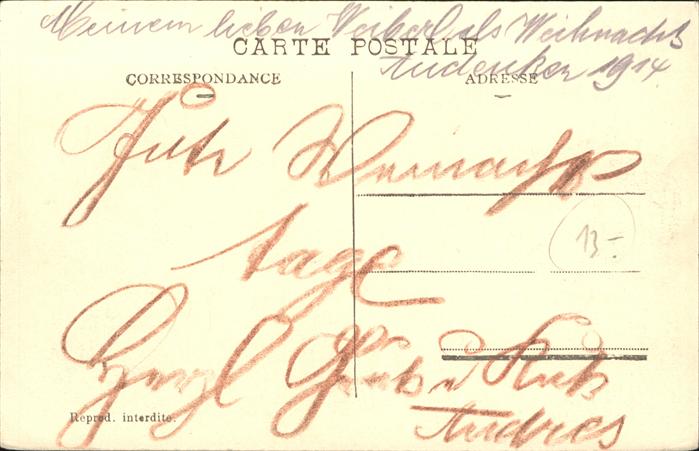 Meinem lieben Weiberl als Weihnachts
Andenken 1914.
CARTE POSTALE
CORRESPONDANCE
ADRESSE
Gute Weinachts
tage
13.-
Herzl Grus u Kuß
Andres
Reprod. interdite.